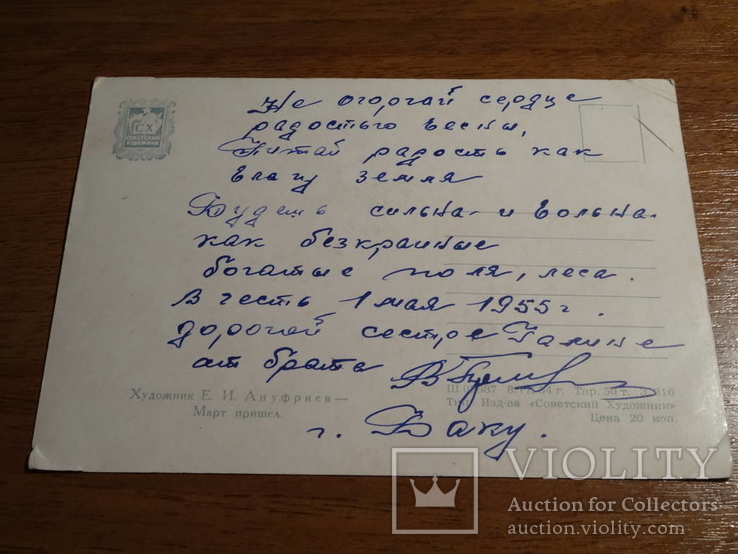 СХ
СОВЕТСКИЙ
ХУДОЖНИК
Не огорчай сердце
радостью весны,
Питай радость как
влагу земля
Будешь сильна и вольна
как безкрайные
богатые поля, леса.
В честь 1 мая 1955 г.
дорогой сестре Галине
от брата
г. Баку.
Художник Е. И. Ануфриев—
Март пришел.
Тир. 50 т.
Тип. Изд-ва «Советский Художник»
Цена 20 коп.
VIOLITY
Auction for Collectors
auction.violity.com